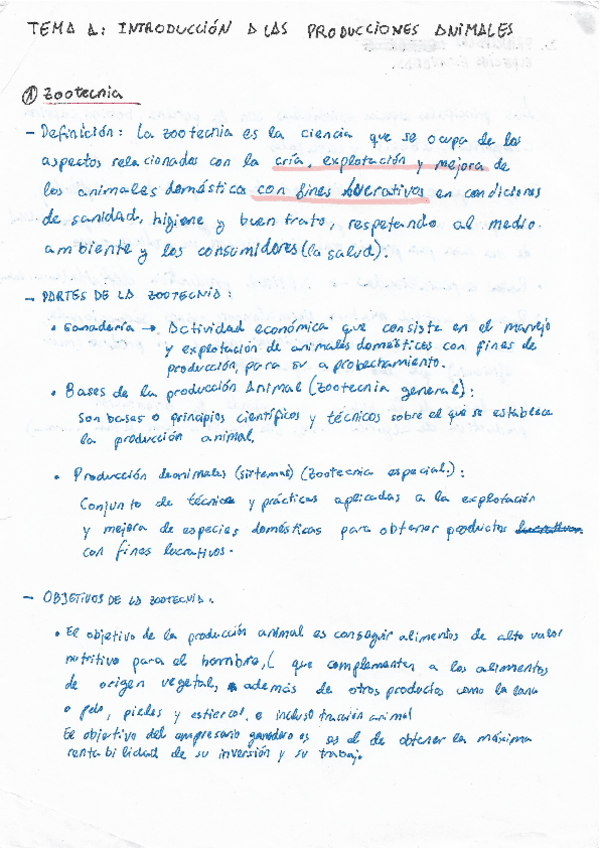 TEMA 1: INTRODUCCIÓN A LAS PRODUCCIONES ANIMALES
① Zootecnia
- Definición: La zootecnia es la ciencia que se ocupa de los
aspectos relacionados con la cría, explotación y mejora de
los animales domésticos con fines lucrativos en condiciones
de sanidad, higiene y buen trato, respetando al medio
ambiente y los consumidores (la salud).
- PARTES DE LA ZOOTECNIA:
• Ganadería → Actividad económica que consiste en el manejo
y explotación de animales domésticos con fines de
producción, para su aprobechamiento.
• Bases de la producción Animal (Zootecnia general):
Son bases o principios científicos y técnicos sobre el que se establece
la producción animal.
• Producción de animales (sistemas) (Zootecnia especial):
Conjunto de técnicas y prácticas aplicadas a la explotación
y mejora de especies domésticas para obtener productos lucrativos
con fines lucrativos.
- OBJETIVOS DE LA ZOOTECNIA:
• El objetivo de la producción animal es conseguir alimentos de alto valor
nutritivo para el hombre, ( que complementen a los alimentos
de origen vegetal, además de otros productos como la lana
o pelo, pieles y estiercol, e incluso tracción animal
El objetivo del empresario ganadero es es el de obtener la máxima
rentabilidad de su inversión y su trabajo.